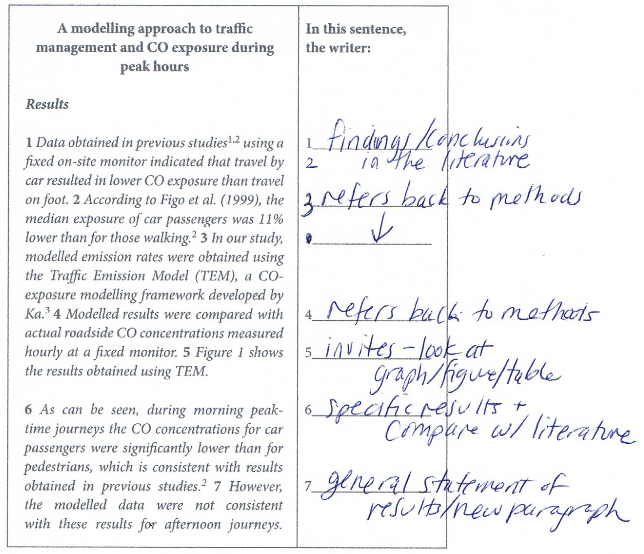 A modelling approach to traffic
management and CO exposure during
peak hours
Results
1 Data obtained in previous studies¹,² using a
fixed on-site monitor indicated that travel by
car resulted in lower CO exposure than travel
on foot. 2 According to Figo et al. (1999), the
median exposure of car passengers was 11%
lower than for those walking.² 3 In our study,
modelled emission rates were obtained using
the Traffic Emission Model (TEM), a CO-
exposure modelling framework developed by
Ka.³ 4 Modelled results were compared with
actual roadside CO concentrations measured
hourly at a fixed monitor. 5 Figure 1 shows
the results obtained using TEM.
6 As can be seen, during morning peak-
time journeys the CO concentrations for car
passengers were significantly lower than for
pedestrians, which is consistent with results
obtained in previous studies.² 7 However,
the modelled data were not consistent
with these results for afternoon journeys.
In this sentence,
the writer:
1 findings/conclusions
2 in the literature
3 refers back to methods
4 refers back to methods
5 invites - look at
graph/figure/table
6 specific results +
compare w/ literature
7 general statement of
results/new paragraph